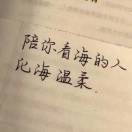 陪你看海的人
比海温柔.